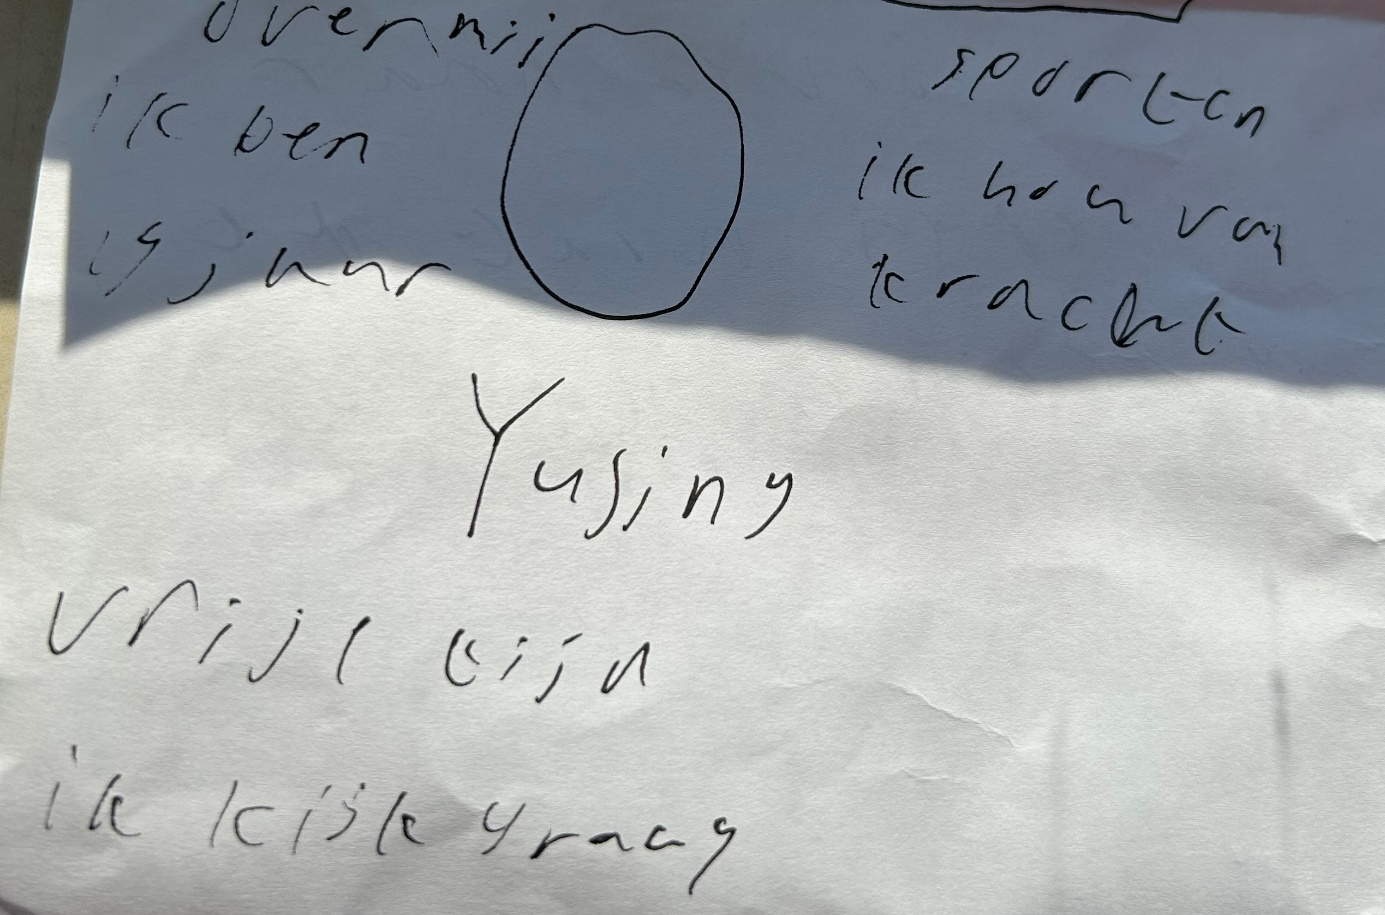 over mij
ik ben
15 jaar
sporten
ik hou van
kracht
Yusjny
vrije tijd
ik kijk graag